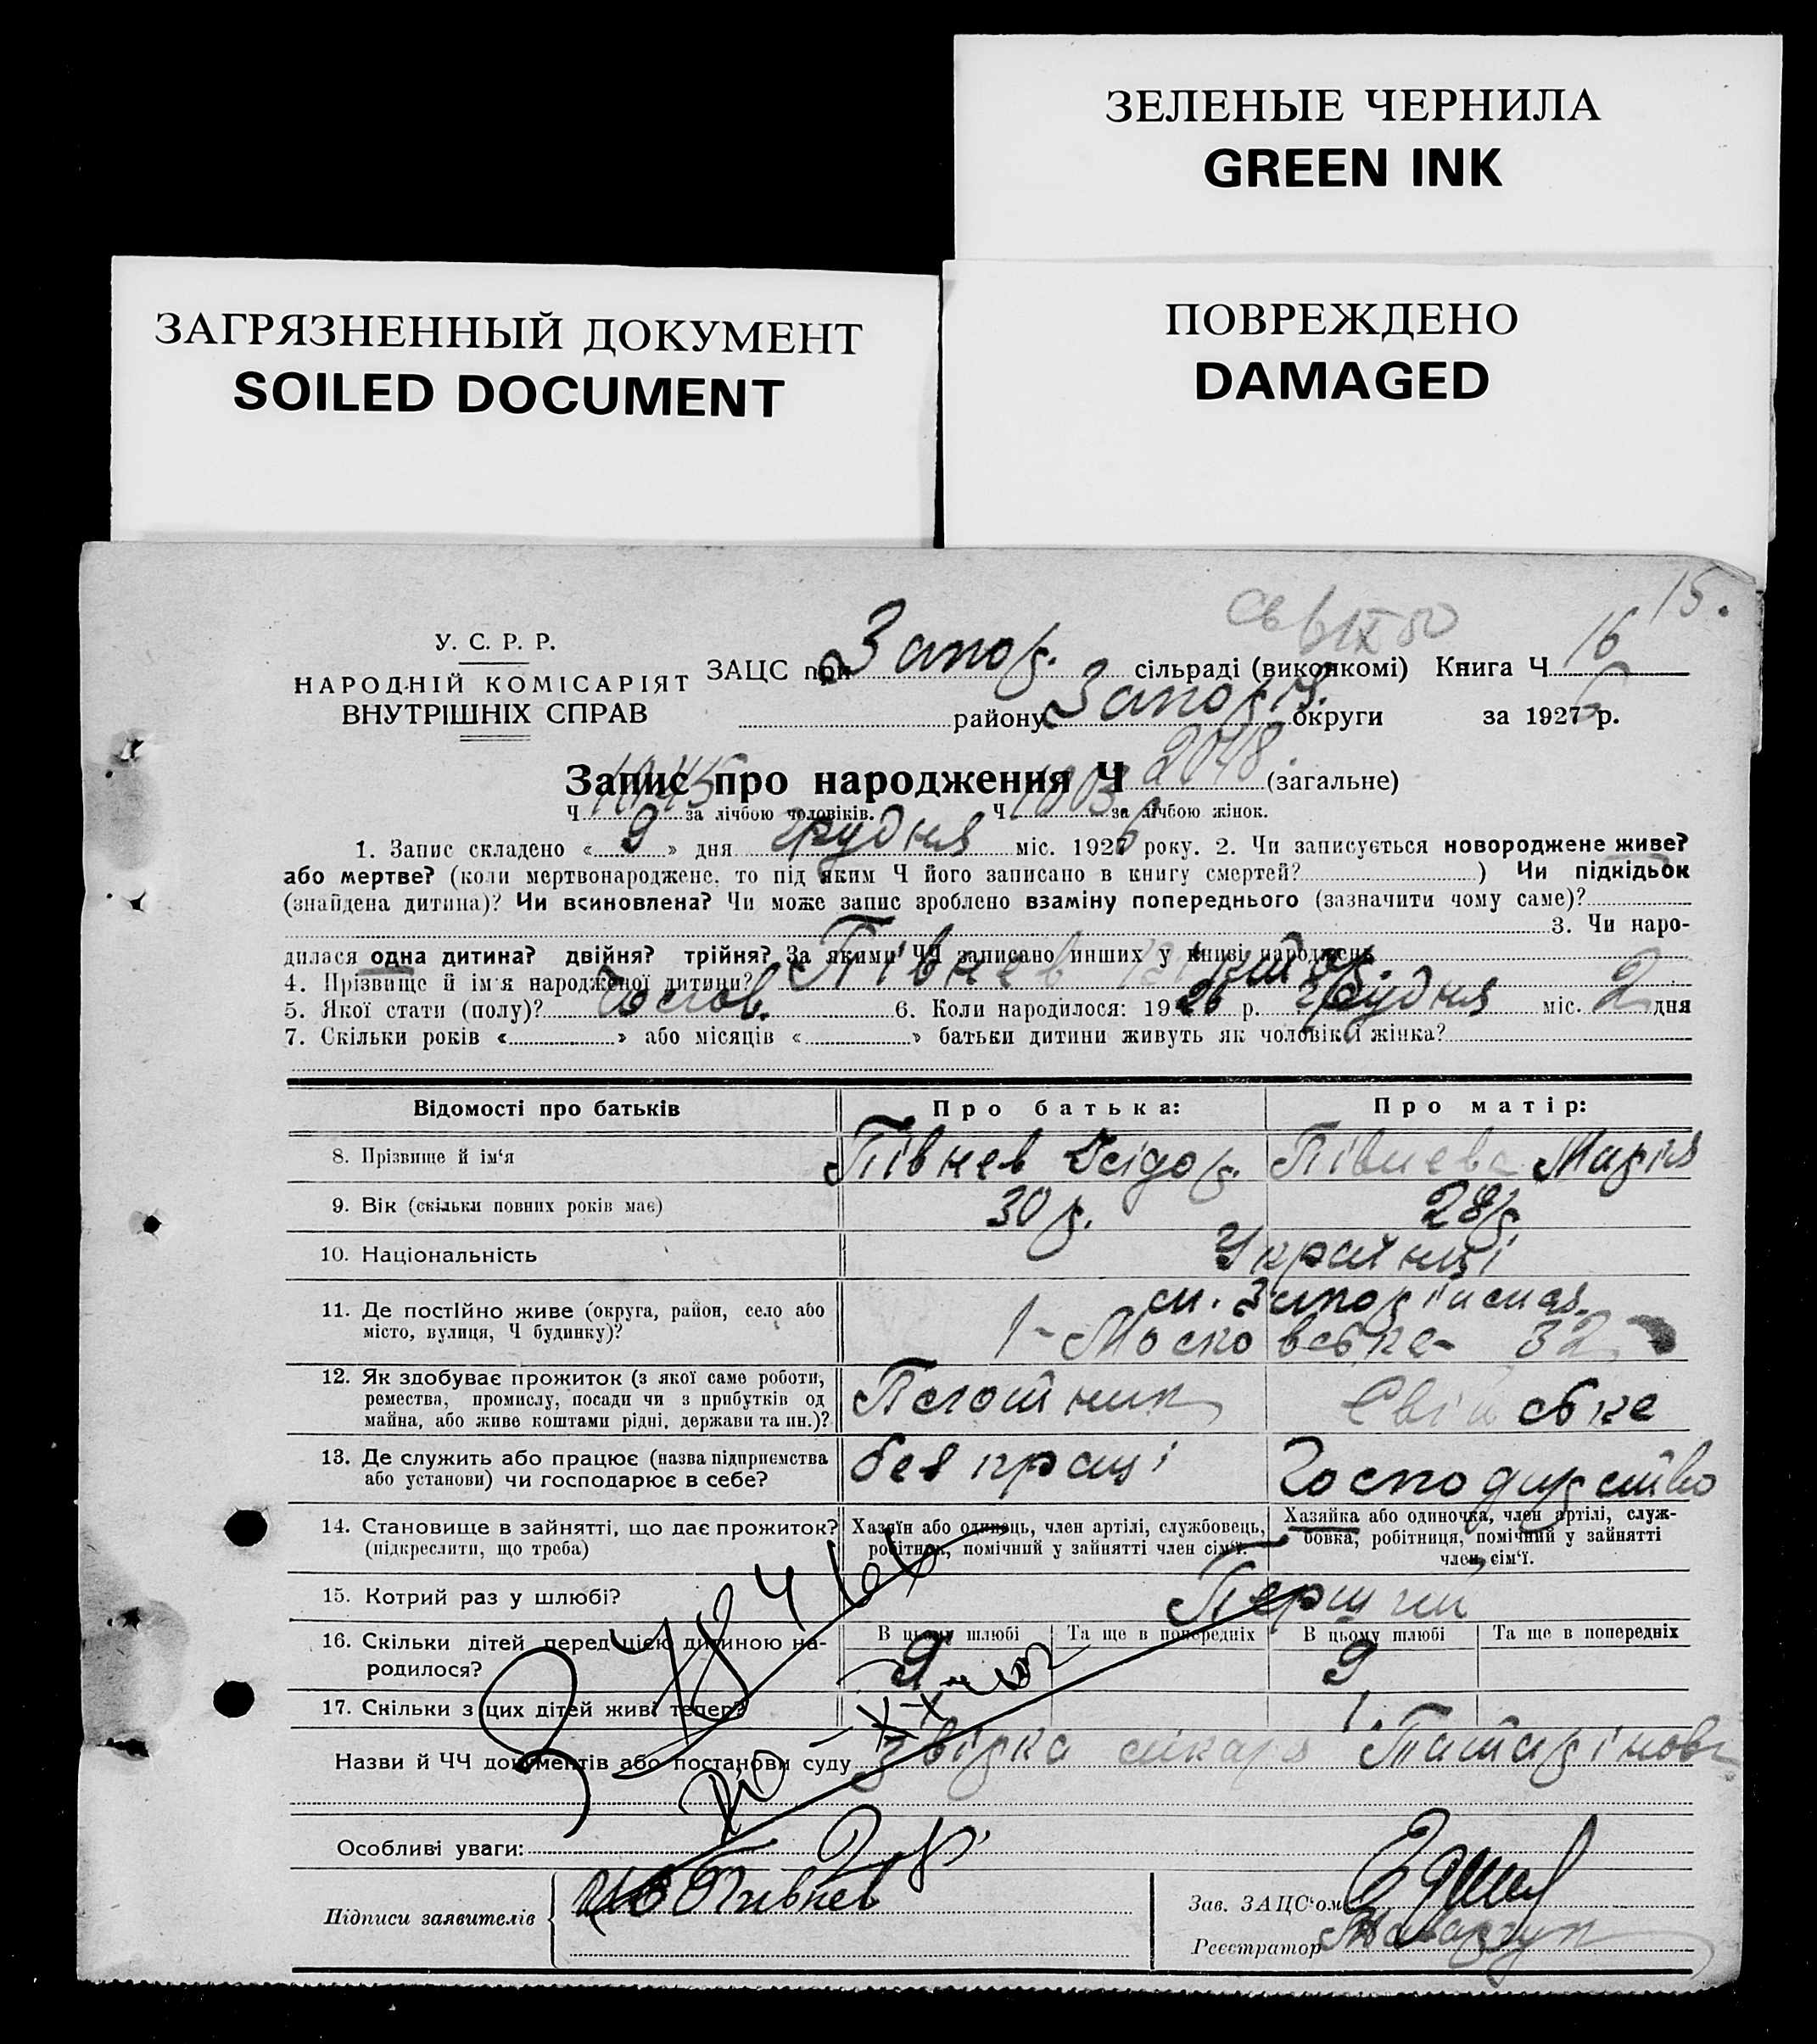 ЗЕЛЕНЫЕ ЧЕРНИЛА
GREEN INK
ЗАГРЯЗНЕННЫЙ ДОКУМЕНТ
SOILED DOCUMENT
ПОВРЕЖДЕНО
DAMAGED
15.
У. С. Р. Р.
НАРОДНІЙ КОМІСАРІЯТ
ВНУТРІШНІХ СПРАВ
ЗАЦС при Запор. сільраді (виконкомі) Книга Ч 16
району Запоріз. округи за 1926 р.
Запис про народження Ч 2048 (загальне)
Ч 1045 за лічбою чоловіків. Ч 1003 за лічбою жінок.
1. Запис складено « 9 » дня грудня міс. 1926 року. 2. Чи записується новороджене живе?
або мертве? (коли мертвонароджене, то під яким Ч його записано в книгу смертей? ) Чи підкідьок
(знайдена дитина)? Чи всиновлена? Чи може запис зроблено взаміну попереднього (зазначити чому саме)?
3. Чи наро-
дилася одна дитина? двійня? трійня? За якими ЧЧ записано инших у книзі народжень
4. Прізвище й ім'я народженої дитини? Півнев
5. Якої стати (полу)? Чолов. 6. Коли народилося: 1926 р. грудня міс. 2 дня
7. Скільки років « » або місяців « » батьки дитини живуть як чоловік і жінка?
Відомості про батьків Про батька: Про матір:
8. Прізвище й ім'я Півнев Ісідор. Півнева Марія
9. Вік (скільки повних років має) 30 р. 28 р.
10. Національність Українці
11. Де постійно живе (округа, район, село або м. Запоріжжя
місто, вулиця, Ч будинку)? 1-Московська 32
12. Як здобуває прожиток (з якої саме роботи, Плотник Свійське
ремества, промислу, посади чи з прибутків од
майна, або живе коштами рідні, держави та ин.)?
13. Де служить або працює (назва підприємства без праці Господарство
або установи) чи господарює в себе?
14. Становище в зайнятті, що дає прожиток? Хазяїн або одинець, член артілі, службовець, Хазяйка або одиночка, член артілі, служ-
(підкреслити, що треба) робітник, помічний у зайнятті член сім'ї. бовка, робітниця, помічний у зайнятті
член сім'ї.
15. Котрий раз у шлюбі? Перший
16. Скільки дітей перед цією дитиною на- В цьому шлюбі Та ще в попередніх В цьому шлюбі Та ще в попередніх
родилося? 9 9
17. Скільки з цих дітей живі тепер? 1
Назви й ЧЧ документів або постанови суду Звідка лікаря
Особливі уваги:
Підписи заявителів Пивнев
Зав. ЗАЦС'ом
Реєстратор